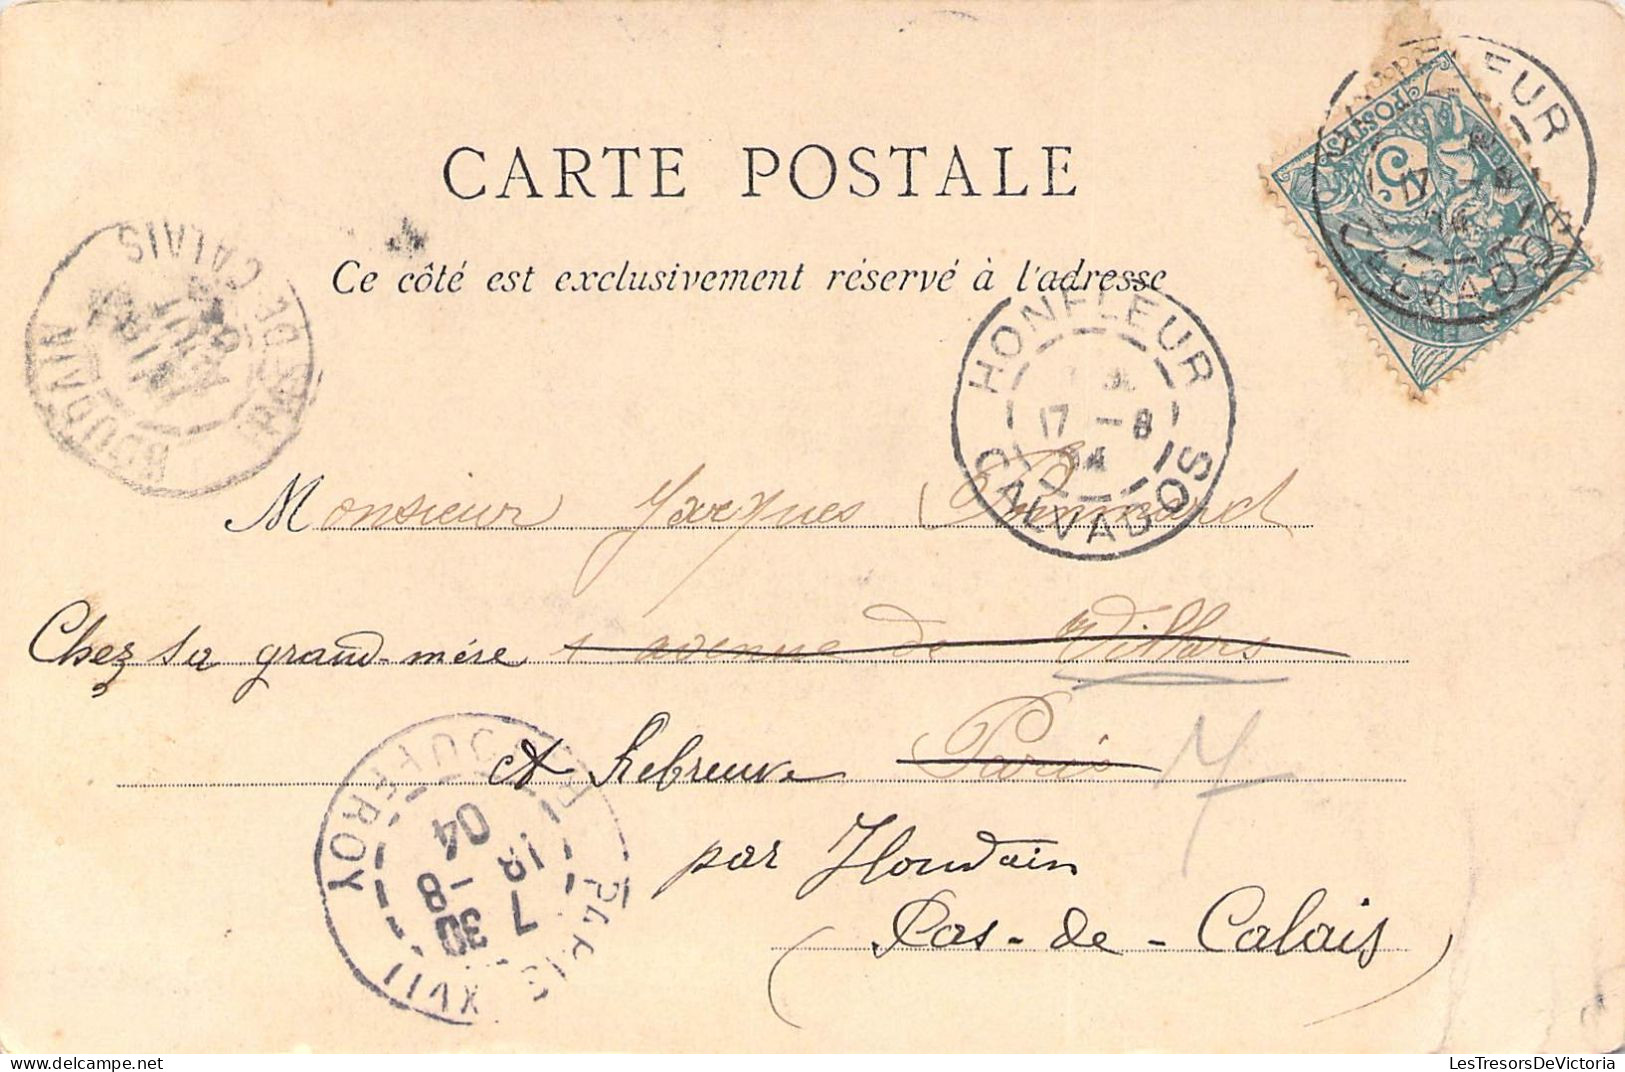 CARTE POSTALE
Ce côté est exclusivement réservé à l'adresse
HONFLEUR
17 - 8
04
CALVADOS
POSTES
5
HONFLEUR
17 - 8
04
CALVADOS
HOUDAIN
PAS DE CALAIS
Monsieur Jacques
Chez sa grand-mère 1 avenue de Villars
A Rebreuve Paris
par Houdain
Pas-de-Calais
PARIS XVII
R. JOUFFROY
7 30
18 - 8
04
LesTresorsDeVictoria